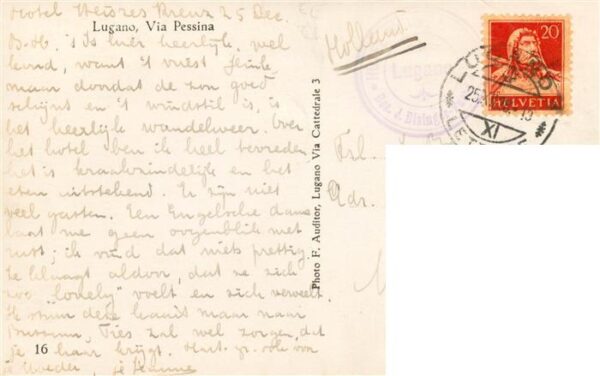 Hotel Weiszes Kreuz 25 Dec.
Lugano, Via Pessina
B-M. 's Is hier heerlijk, wel
koud, want 't vriest flink
maar doordat de zon goed
schijnt en 't windstil is, is
het heerlijk wandelweer. Over
het hotel ben ik heel tevreden
het is kraakzindelijk en het
eten uitstekend. Er zijn niet
veel gasten. Een Engelsche dame
laat me geen oogenblik met
rust; ik vind dat niets prettig.
Ze klaagt aldoor, dat ze zich
zoo "lonely" voelt en zich verveelt.
Ik stuur deze kaart maar naar
Bussum, Ties zal wel zorgen, dat
je haar krijgt. Hart. gr. ook aan
je Moeder, je
16
Photo F. Auditor, Lugano Via Cattedrale 3
Holland
Lugano
20
HELVETIA
LUGANO
25
XI
Frl.
Adr.